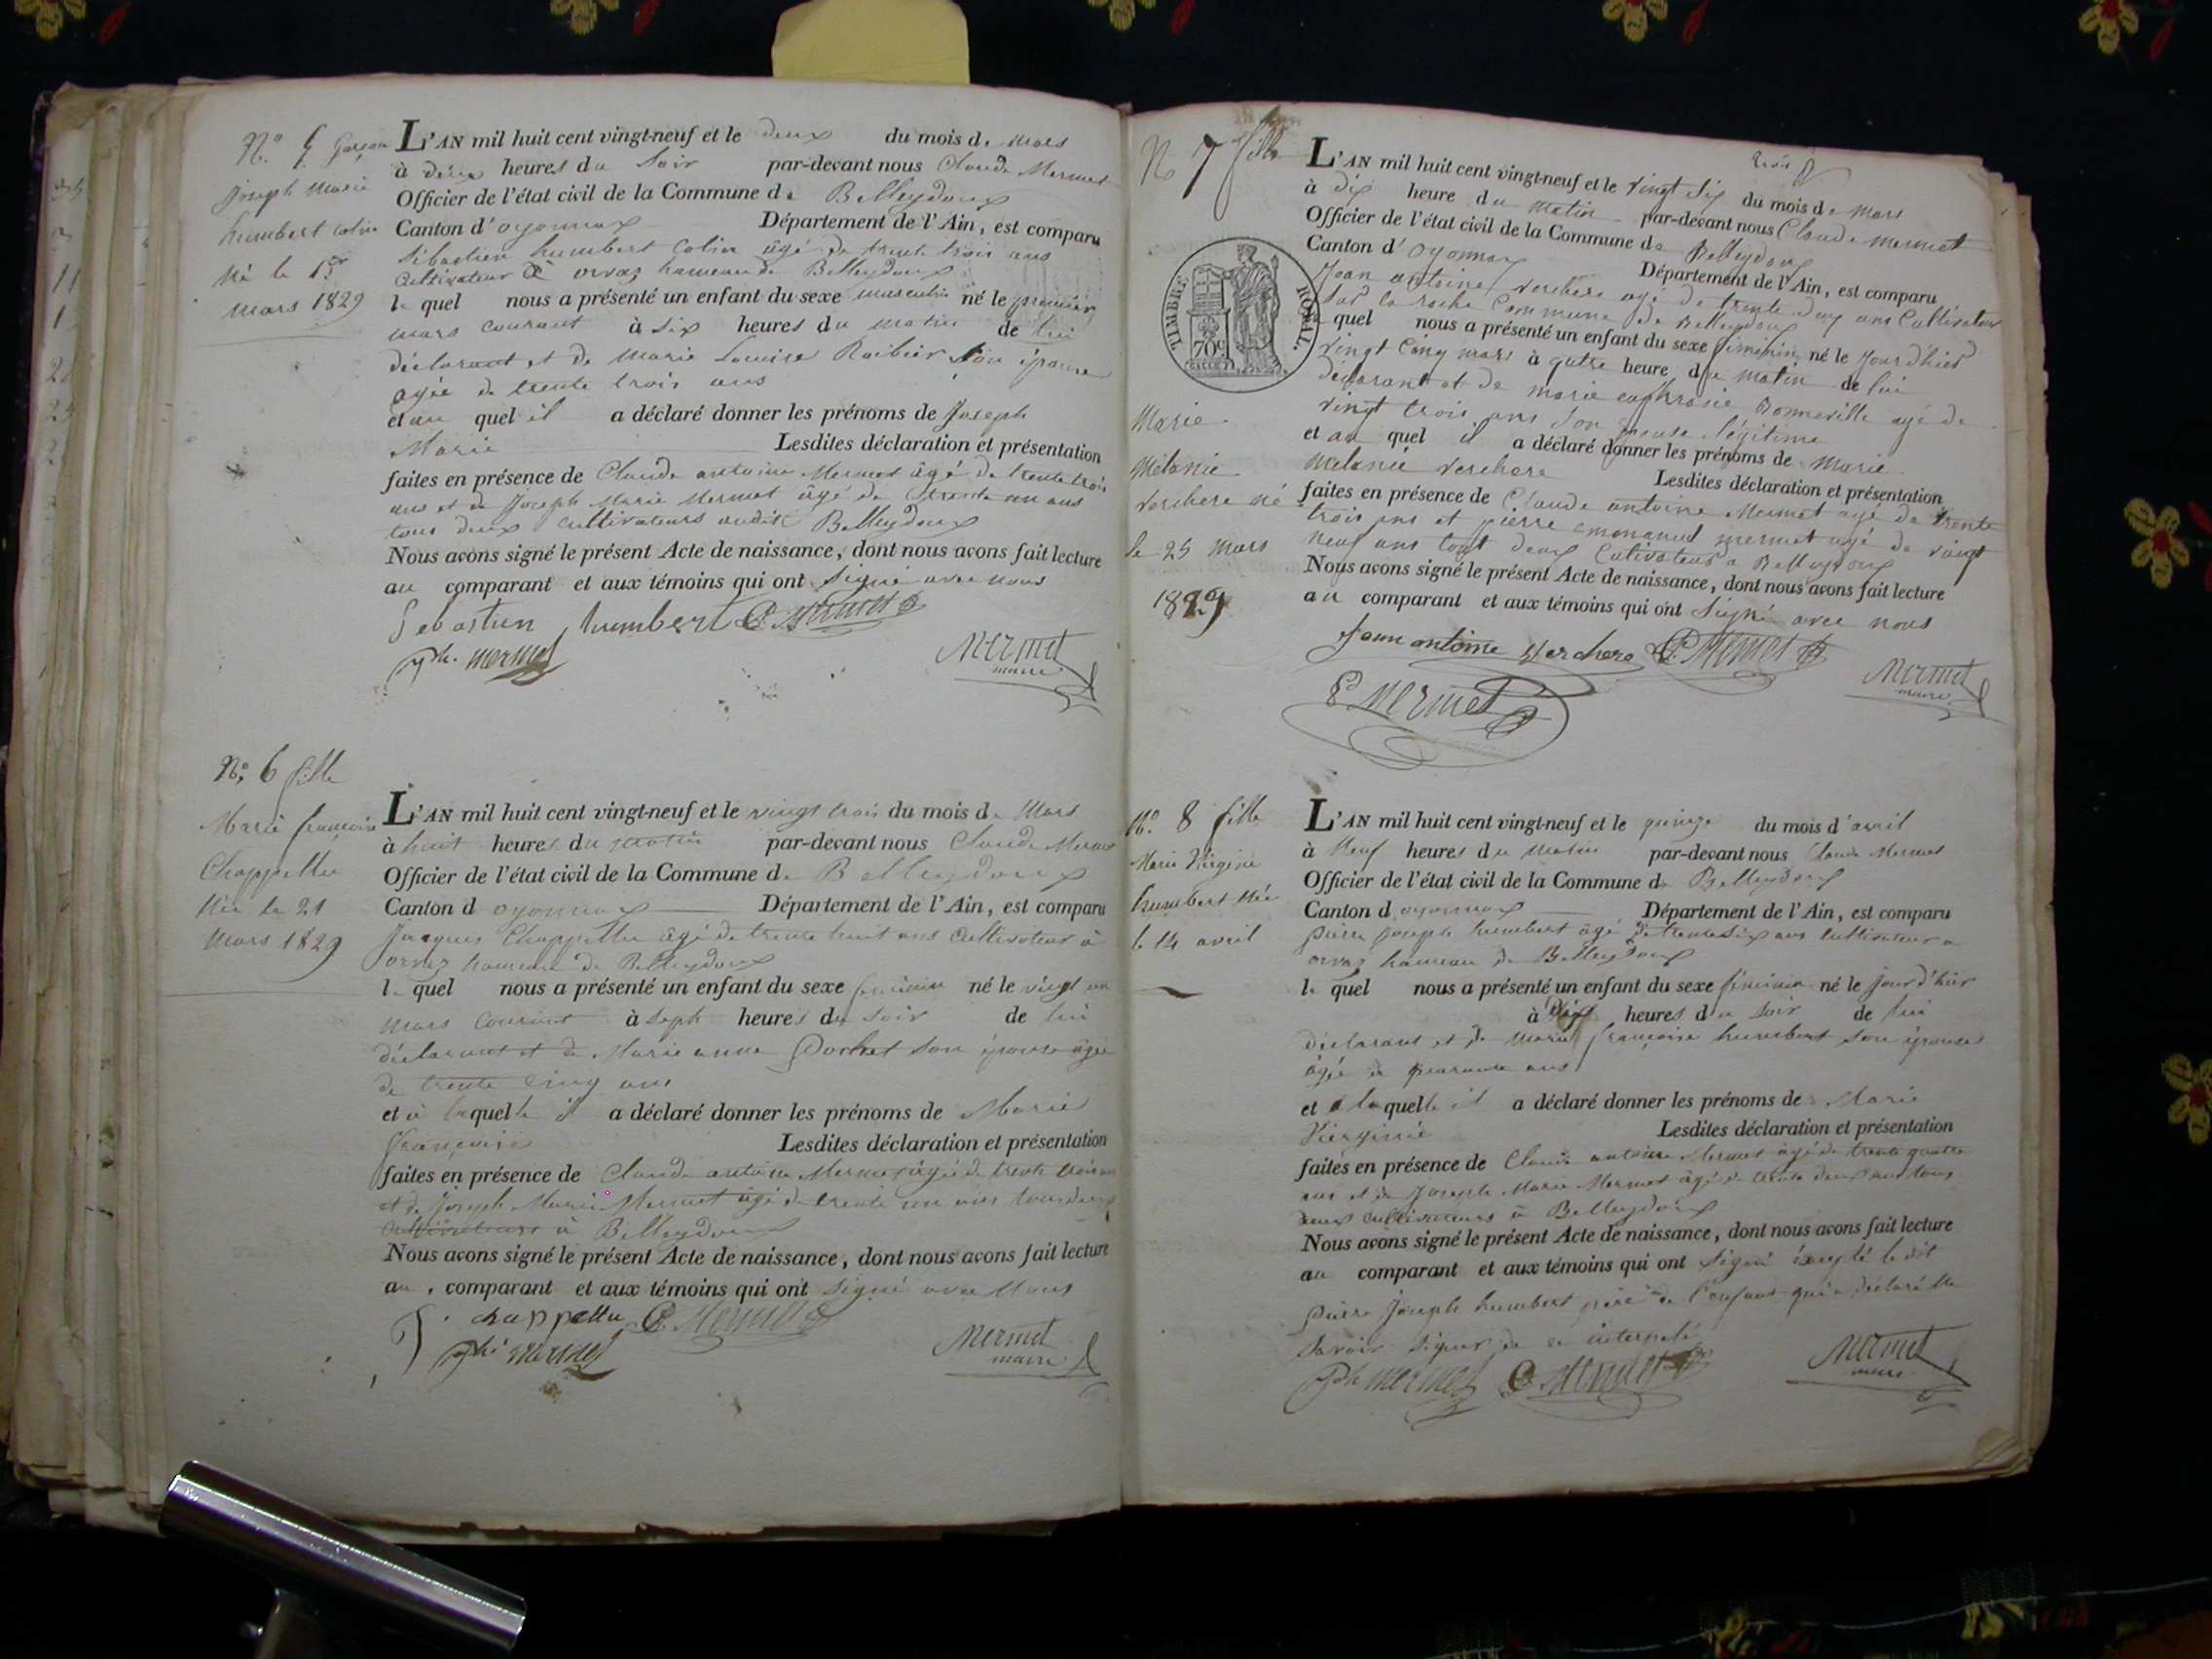 N.° 5 garçon
Joseph Marie
humbert Colin
Né le 1er
mars 1829
L'AN mil huit cent vingt-neuf et le deux du mois de mars
à deux heures du soir par-devant nous Claude Mermet
Officier de l'état civil de la Commune de Belleydoux
Canton d'oyonnax Département de l'Ain, est comparu
Sébastien humbert Colin âgé de trente trois ans
Cultivateur à orvaz hameau de Belleydoux
le quel nous a présenté un enfant du sexe masculin né le premier
mars courant à six heures du matin de lui
déclarant et de Marie Louise son épouse
agée de trente trois ans
et au quel il a déclaré donner les prénoms de Joseph
Marie Lesdites déclaration et présentation
faites en présence de Claude antoine Mermet âgé de trente trois
ans et de Joseph Marie Mermet âgé de trente un ans
tous deux cultivateurs audit Belleydoux
Nous avons signé le présent Acte de naissance, dont nous avons fait lecture
au comparant et aux témoins qui ont signé avec nous
Sebastien humbert C. Mermet
jph. mermet Mermet
maire
N.° 6 fille
Marie françoise
Chappellu
Née le 21
Mars 1829
L'AN mil huit cent vingt-neuf et le vingt trois du mois de Mars
à huit heures du matin par-devant nous Claude Mermet
Officier de l'état civil de la Commune de Belleydoux
Canton d oyonnax Département de l'Ain, est comparu
Jacques Chappellu âgé de trente huit ans Cultivateur à
orvaz hameau de Belleydoux
le quel nous a présenté un enfant du sexe féminin né le vingt un
mars courant à sept heures du soir de lui
déclarant et de Marie anne son épouse âgée
de trente cinq ans
et à laquelle il a déclaré donner les prénoms de Marie
françoise Lesdites déclaration et présentation
faites en présence de Claude antoine Mermet âgé de trente trois ans
et de Joseph Marie Mermet âgé de trente un ans tous deux
cultivateurs à Belleydoux
Nous avons signé le présent Acte de naissance, dont nous avons fait lecture
au comparant et aux témoins qui ont signé avec Nous
J. chappellu C. Mermet
jph. mermet Mermet
maire
N 7 fille
TIMBRE ROYAL.
70c
Marie
Mélanie
Verchere né
le 25 mars
1829
L'AN mil huit cent vingt-neuf et le vingt six du mois de mars
à dix heure du matin par-devant nous Claude mermet
Officier de l'état civil de la Commune de Belleydoux
Canton d'oyonnax Département de l'Ain, est comparu
Jean antoine Verchere agé de trente deux ans Cultivateur
sur la roche Commune de Belleydoux
quel nous a présenté un enfant du sexe féminin né le jour d'hier
vingt cinq mars à qutre heure du matin de lui
declarant et de marie euphrasie Bonneville agé de
vingt trois ans son epouse légitime
et au quel il a déclaré donner les prénoms de Marie
Melanie Verchere Lesdites déclaration et présentation
faites en présence de Claude antoine Mermet agé de trente
trois ans et pierre emmanuel mermet agé de vingt
neuf ans tout deux Cultivateur a Belleydoux
Nous avons signé le présent Acte de naissance, dont nous avons fait lecture
au comparant et aux témoins qui ont signé avec nous
Jean antoine Verchere C. Mermet
E Mermet Mermet
maire
N.° 8 fille
Marie Virginie
humbert Née
le 14 avril
L'AN mil huit cent vingt-neuf et le quinze du mois d'avril
à Neuf heures du matin par-devant nous Claude Mermet
Officier de l'état civil de la Commune de Belleydoux
Canton d oyonnax Département de l'Ain, est comparu
pierre joseph humbert âgé de trente six ans cultivateur a
orvaz hameau de Belleydoux
le quel nous a présenté un enfant du sexe féminin né le jour d'hier
à heures du soir de lui
déclarant et de marie françoise humbert son épouse
âgée de quarante ans
et a laquelle il a déclaré donner les prénoms de Marie
Vierginie Lesdites déclaration et présentation
faites en présence de Claude antoine Mermet âgé de trente quatre
ans et de Joseph Marie Mermet âgé de trente deux ans tous
deux cultivateurs à Belleydoux
Nous avons signé le présent Acte de naissance, dont nous avons fait lecture
au comparant et aux témoins qui ont signé excepté le dit
pierre Joseph humbert père de l'enfant qui a déclaré ne
savoir signer de ce interpelé
Jph mermet C. Mermet Mermet
maire